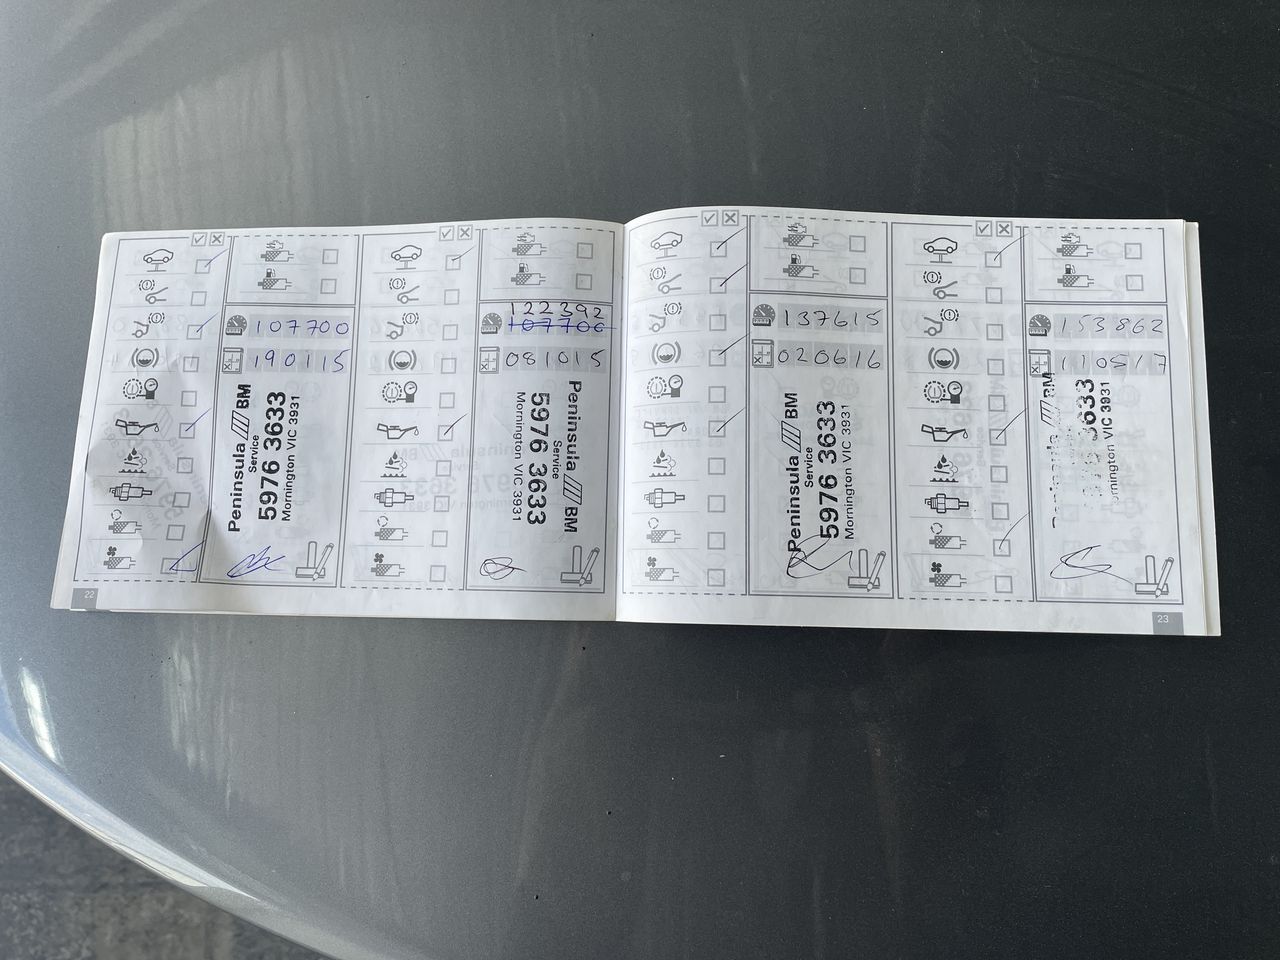 107700
190115
Peninsula BM
Service
5976 3633
Mornington VIC 3931
22
122392
107700
081015
Peninsula BM
Service
5976 3633
Mornington VIC 3931
137615
020616
Peninsula BM
Service
5976 3633
Mornington VIC 3931
153862
110517
Peninsula BM
3633
Mornington VIC 3931
23